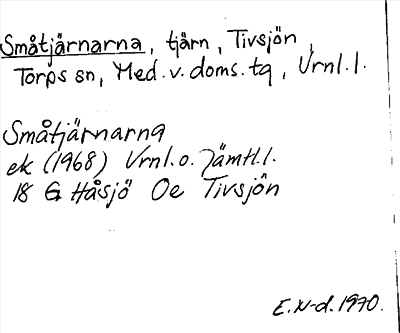 Småtjärnarna, tjärn, Tivsjön,
Torps sn, Med.v.doms.tg, Vrnl.l.
Småtjärnarna
ek (1968) Vrnl.o.Jämtl.l.
18 G Håsjö Oe Tivsjön
E.N-d.1970.